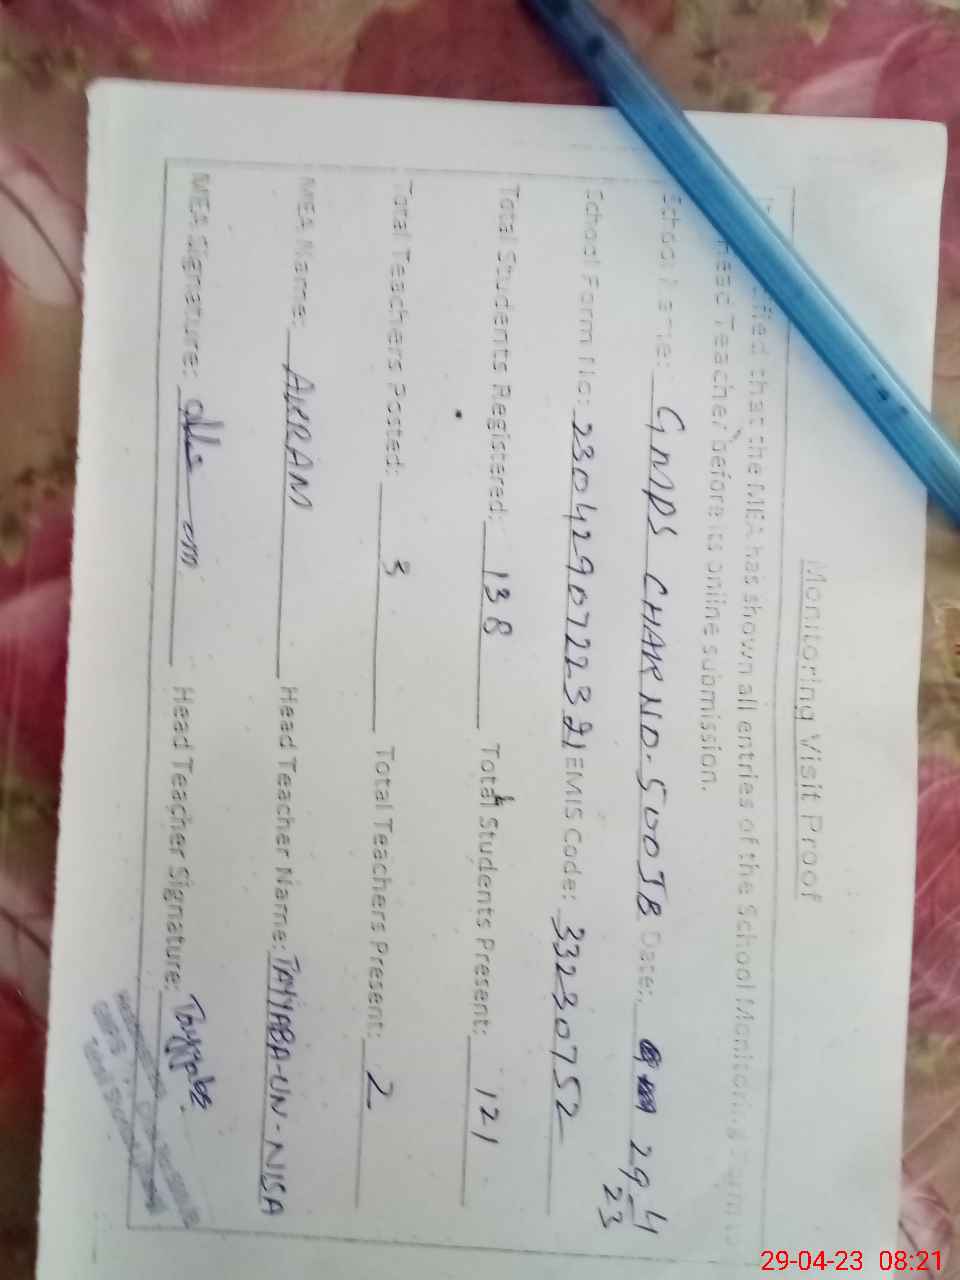 Monitoring Visit Proof
that the MEA has shown all entries of the School Monitoring Form to
Head Teacher before its online submission.
School Name: GMPS CHAK NO-500JB Date: 29-4-23
School Form No: EMIS Code: 33230752
Total Students Registered: 138 Total Students Present: 121
Total Teachers Posted: 3 Total Teachers Present: 2
MEA Name: AKRAM Head Teacher Name: TAYYABA-UN-NISA
MEA Signature: Head Teacher Signature: Tayyaba
29-04-23 08:21